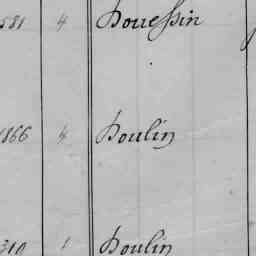 581 4 Pouessin
1866 4 Poulin
310 1 Poulin